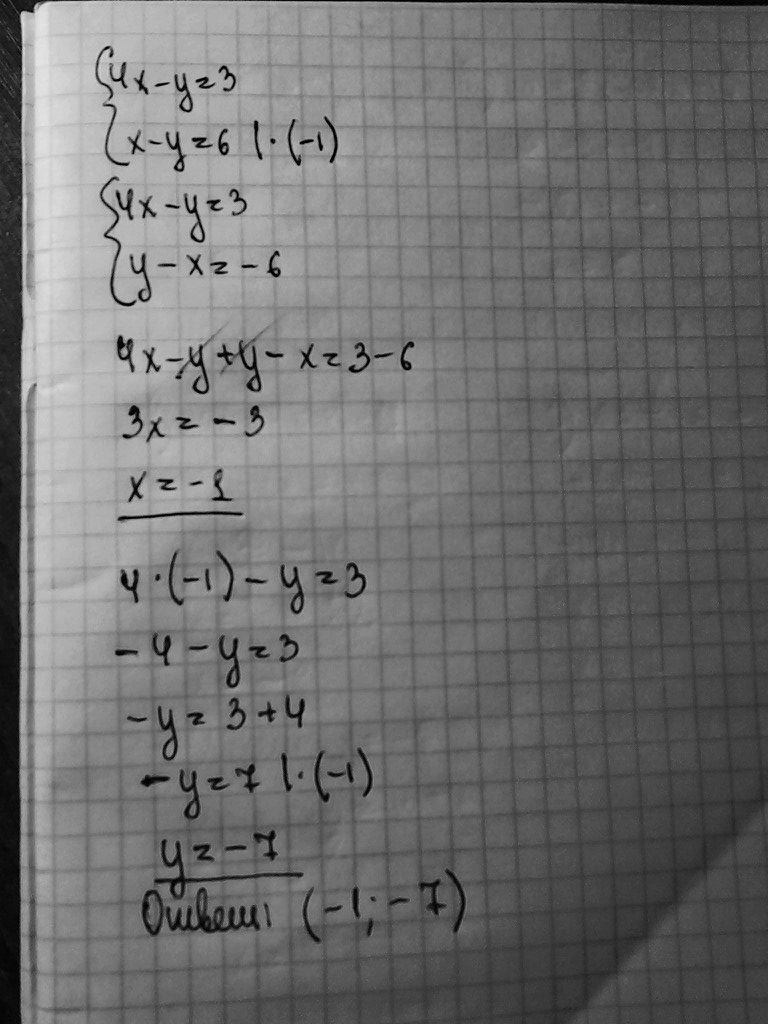 4x-y=3
x-y=6 |·(-1)
4x-y=3
y-x=-6
4x-y+y-x=3-6
3x=-3
x=-1
4·(-1)-y=3
-4-y=3
-y=3+4
-y=7 |·(-1)
y=-7
Ответ: (-1;-7)